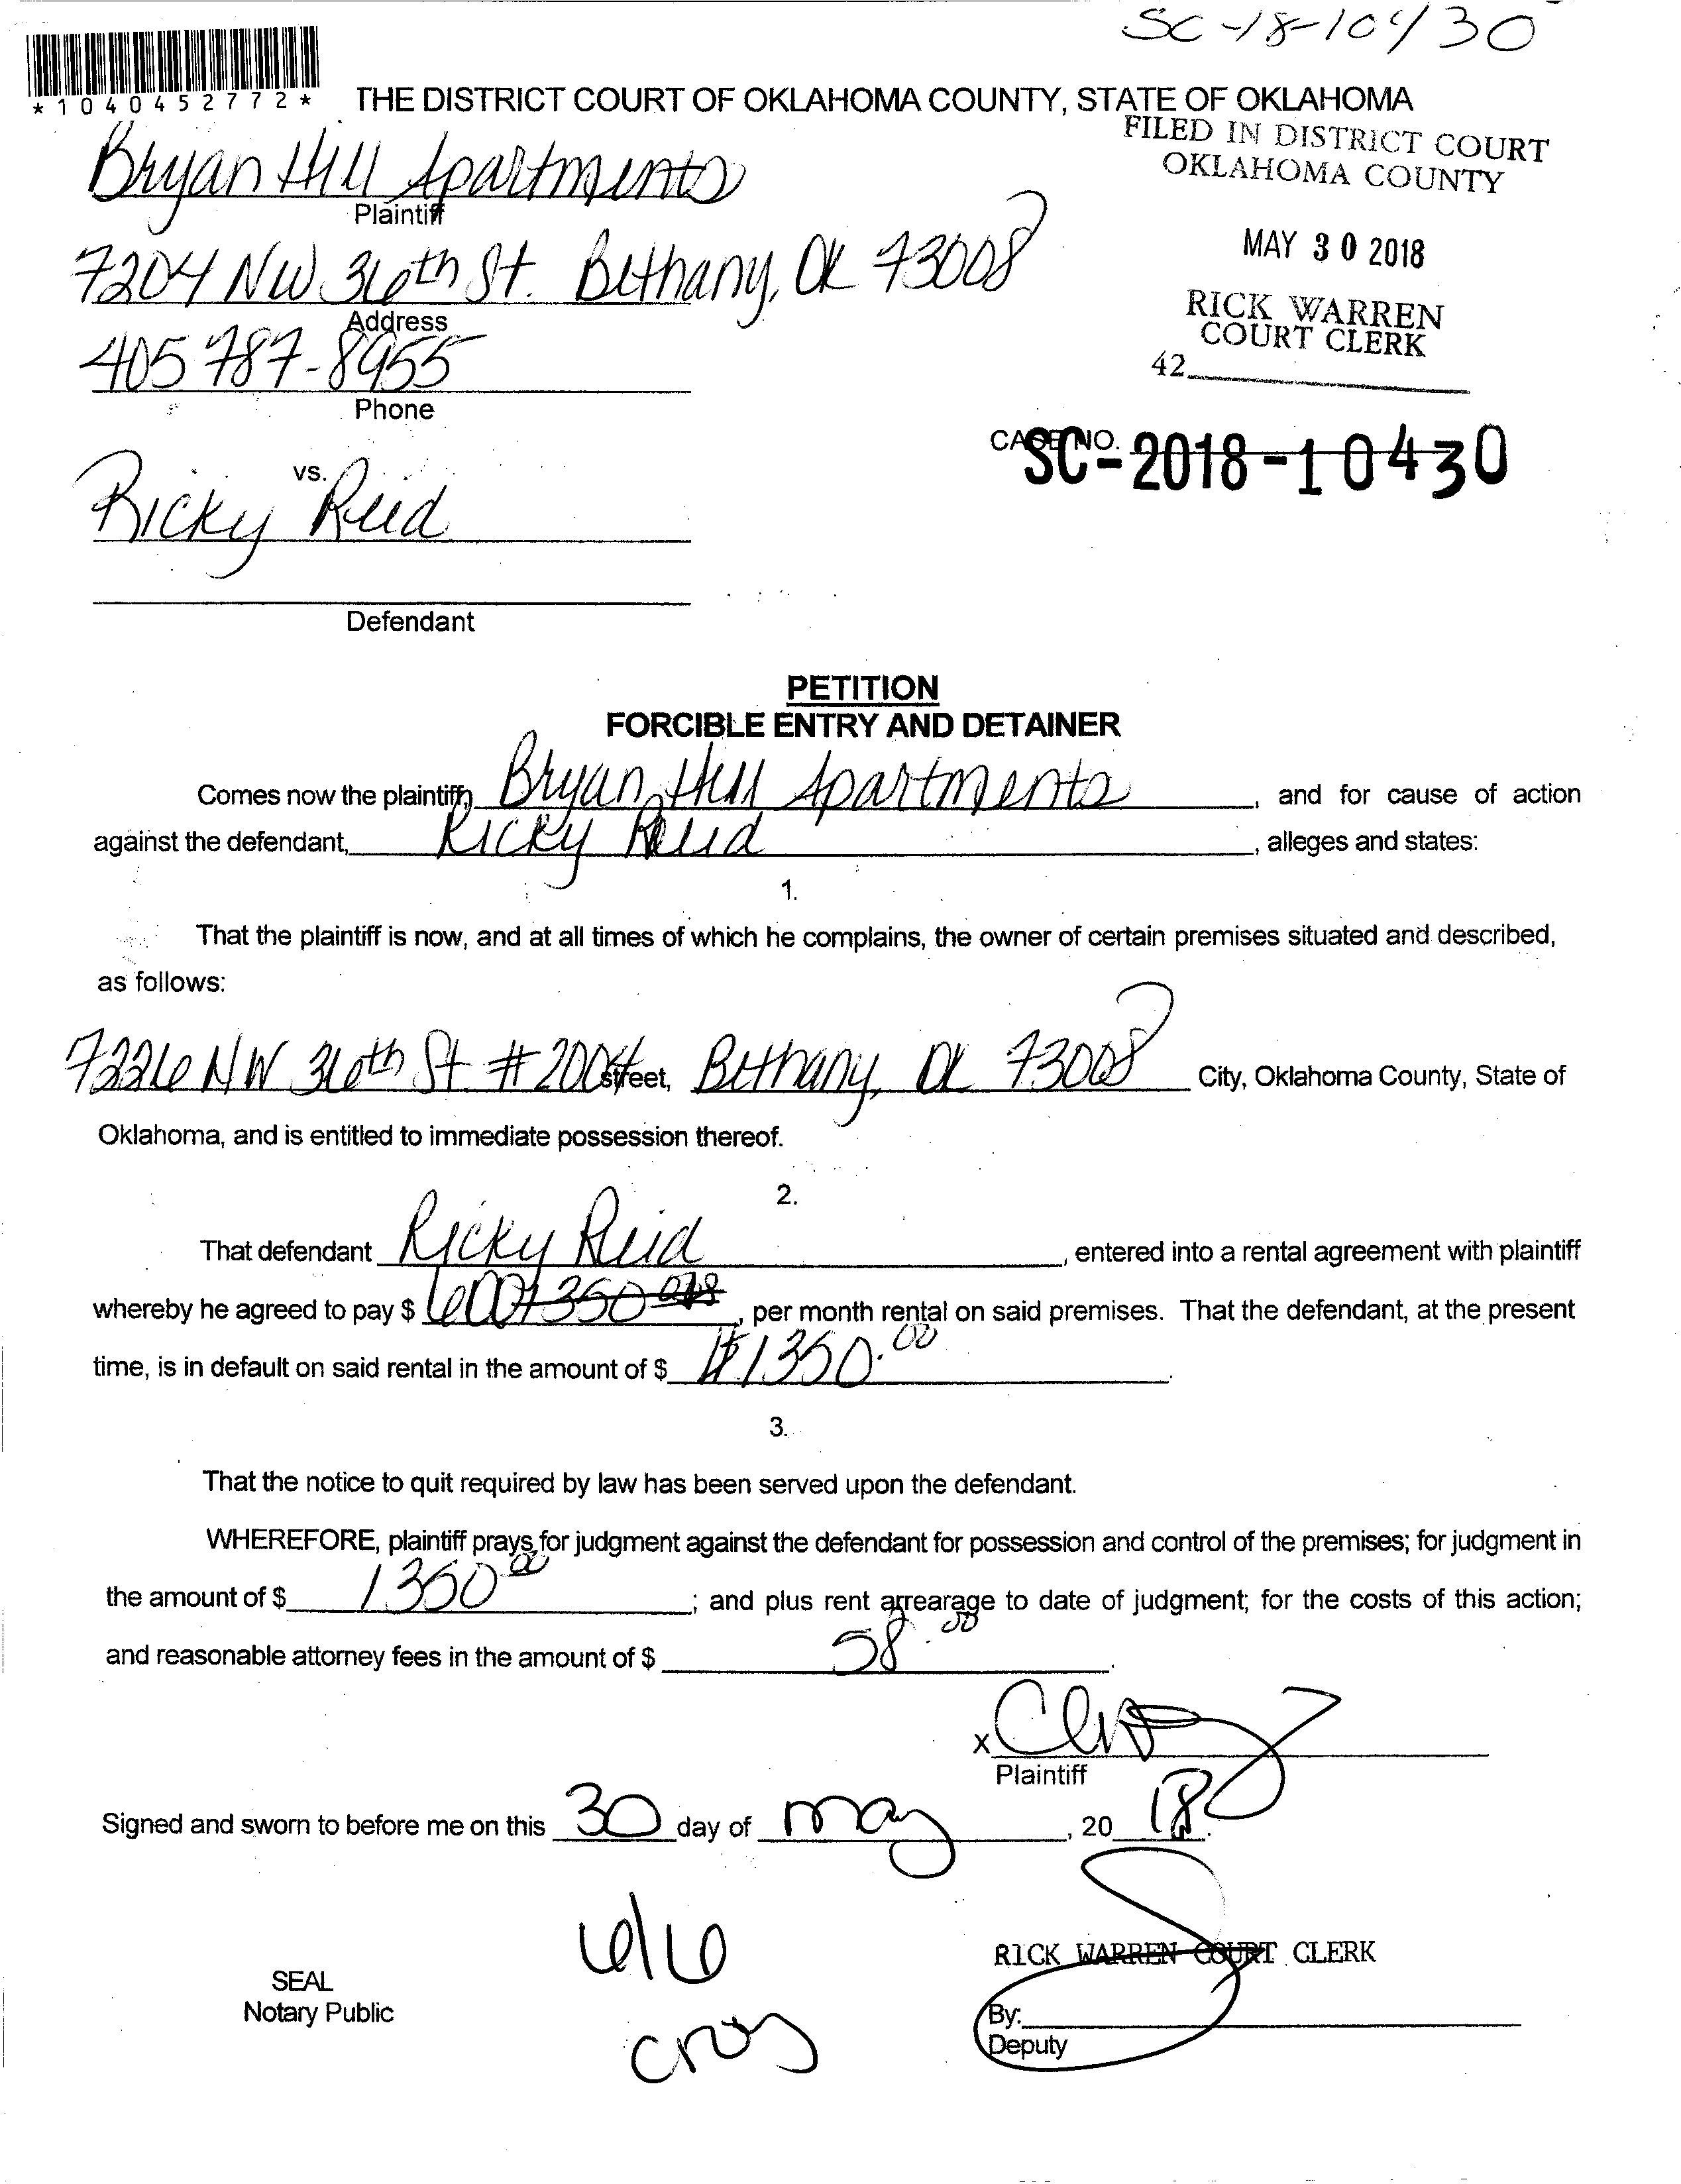 SC-18-10430
*1040452772*
THE DISTRICT COURT OF OKLAHOMA COUNTY, STATE OF OKLAHOMA
FILED IN DISTRICT COURT
OKLAHOMA COUNTY
Bryan Hill Apartments
Plaintiff
MAY 30 2018
7204 NW 36th St. Bethany, OK 73008
Address
RICK WARREN
COURT CLERK
42
405 787-8955
Phone
CASE NO. SC-2018-10430
vs.
Ricky Reid
Defendant
PETITION
FORCIBLE ENTRY AND DETAINER
Comes now the plaintiff, Bryan Hill Apartments, and for cause of action
against the defendant, Ricky Reid, alleges and states:
1.
That the plaintiff is now, and at all times of which he complains, the owner of certain premises situated and described,
as follows:
7226 NW 36th St #2004 street, Bethany, OK 73008 City, Oklahoma County, State of
Oklahoma, and is entitled to immediate possession thereof.
2.
That defendant Ricky Reid, entered into a rental agreement with plaintiff
whereby he agreed to pay $ 600 1350, per month rental on said premises. That the defendant, at the present
time, is in default on said rental in the amount of $ $1350.00.
3.
That the notice to quit required by law has been served upon the defendant.
WHEREFORE, plaintiff prays for judgment against the defendant for possession and control of the premises; for judgment in
the amount of $ 1350 00; and plus rent arrearage to date of judgment; for the costs of this action;
and reasonable attorney fees in the amount of $ 58.00.
X
Plaintiff
Signed and sworn to before me on this 30 day of may, 20 18.
6/6
RICK WARREN COURT CLERK
SEAL
Notary Public
By:
Deputy